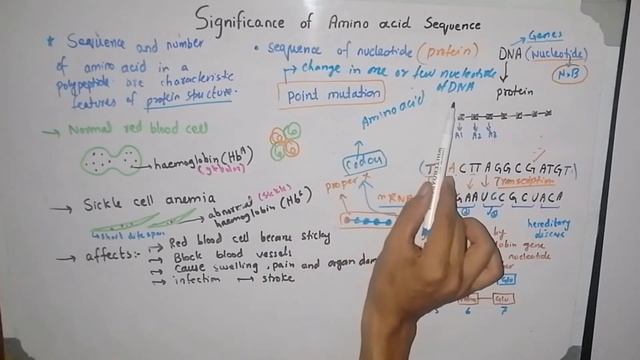 Significance of Amino acid Sequence
* Sequence and number
of amino acid in a
polypeptide are characteristic
features of protein structure.
• sequence of nucleotide (protein)
→ change in one or few nucleotide
of DNA
Point mutation
Genes
DNA (Nucleotide)
NxB
protein
Amino acid
A1 A2 A3
→ Normal red blood cell
haemoglobin (HbA)
(globular)
codon
proper
mRNA
ACTTAGGCGATGT
Transcription
GAAUCCGCUACA
→ Sickle cell anemia
abnormal (sickle)
haemoglobin (HbS)
short life span
→ affects:- → Red blood cell become sticky
→ Block blood vessels
→ cause swelling, pain and organ dam
→ infection → stroke
hereditary
disease
by
obin gene
nucleotide
Glu
6 7
Glu